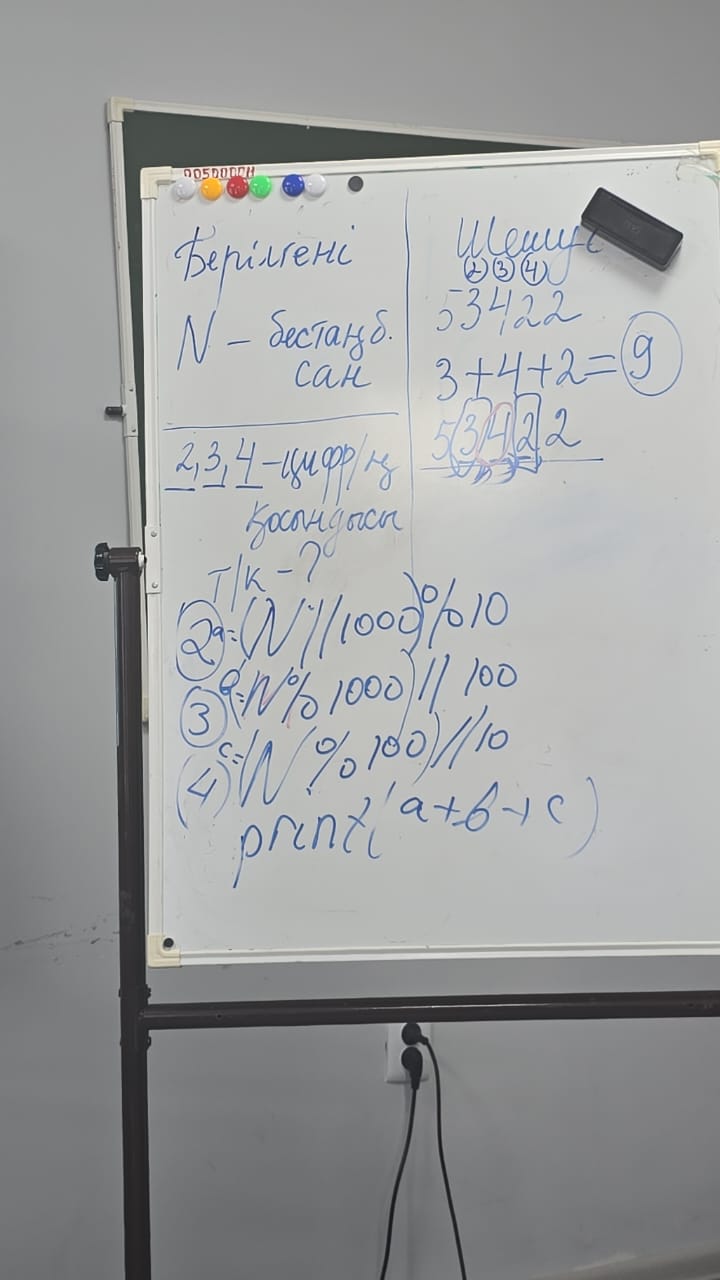 Берілгені
N – бестаңб.
сан
2,3,4 – цифр/ң
қосындысы
т/к – ?
② a=(N//1000)%10
③ b=(N%1000)//100
④ c=(N%100)//10
print(a+b+c)
Шешуі
② ③ ④
53422
3+4+2=9
53422